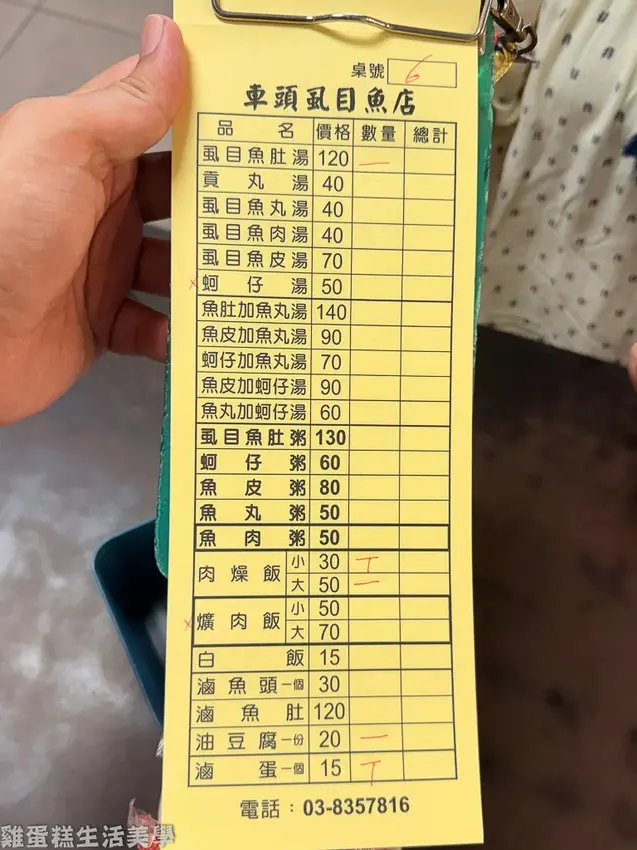 桌號 6
車頭虱目魚店
品名 價格 數量 總計
虱目魚肚湯 120 一
貢丸湯 40
虱目魚丸湯 40
虱目魚肉湯 40
虱目魚皮湯 70
x 蚵仔湯 50
魚肚加魚丸湯 140
魚皮加魚丸湯 90
蚵仔加魚丸湯 70
魚皮加蚵仔湯 90
魚丸加蚵仔湯 60
虱目魚肚粥 130
蚵仔粥 60
魚皮粥 80
魚丸粥 50
魚肉粥 50
肉燥飯 小 30 T
大 50 一
x 爌肉飯 小 50
大 70
白飯 15
滷魚頭一個 30
滷魚肚 120
油豆腐一份 20 一
滷蛋一個 15 T
電話：03-8357816
雞蛋糕生活美學